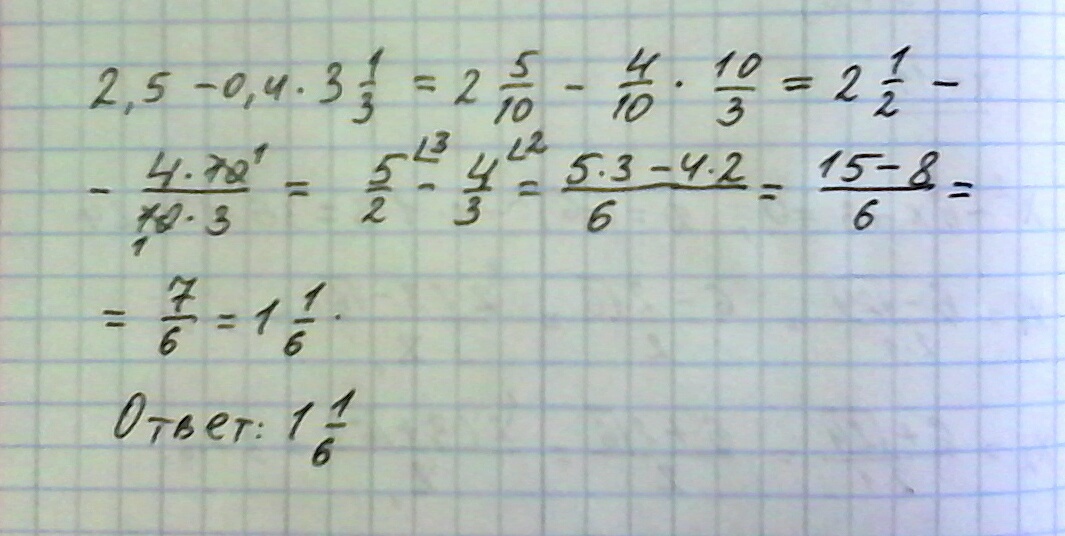 2,5 - 0,4 · 3 1/3 = 2 5/10 - 4/10 · 10/3 = 2 1/2 -
- 4·10¹/10₁·3 = 5/2 ⌊3 - 4/3 ⌊2 = 5·3-4·2/6 = 15-8/6 =
= 7/6 = 1 1/6 .
Ответ: 1 1/6